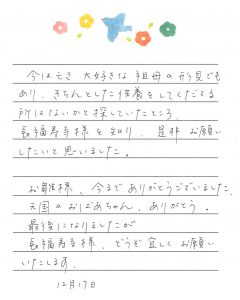 今は亡き 大好きな 祖母の形見でも
あり、きちんとした供養をしてくださる
所はないかと探していたところ、
長福寿寺様を知り、是非お願い
したいと思いました。
お雛様、今までありがとうございました。
天国のおばあちゃん、ありがとう。
最後になりましたが
長福寿寺様、どうぞ宜しくお願い
いたします。
12月17日